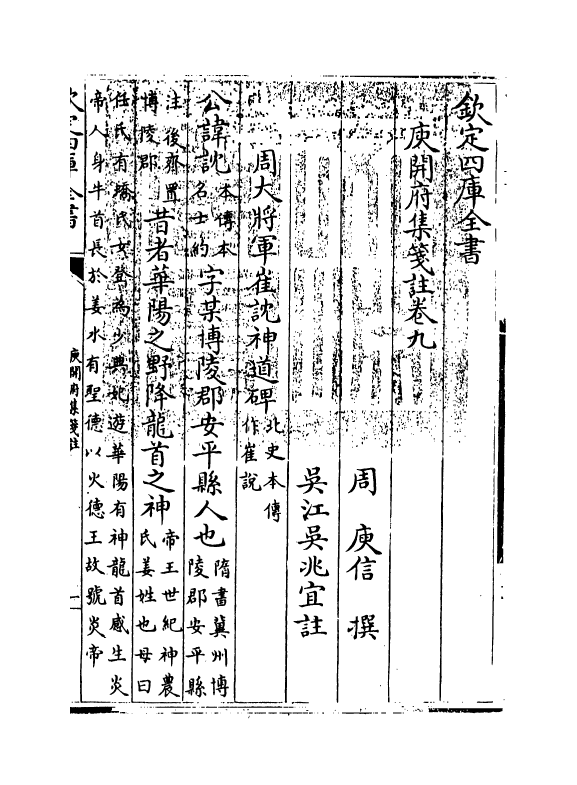 欽定四庫全書
庾開府集箋註卷九
周 庾信 撰
吳江吳兆宜註
周大將軍崔説神道碑北史本傳作崔說
公諱説本傳本名士約字某博陵郡安平縣人也隋書冀州博陵郡安平縣
注後齊置博陵郡昔者華陽之野降龍首之神帝王世紀神農氏姜姓也母曰
任氏有蟜氏女登為少典妃遊華陽有神龍首感生炎
帝人身牛首長於姜水有聖德以火德王故號炎帝
欽定四庫全書
庾開府集箋註
一